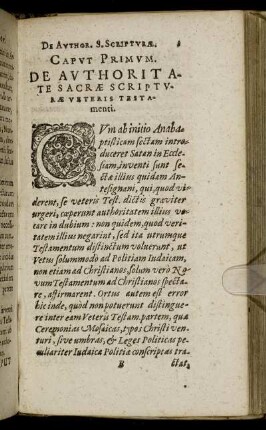 DE AVTHOR. S. SCRIPTVRÆ.
CAPVT PRIMVM.
DE AVTHORITA-
TE SACRÆ SCRIPTV-
RÆ VETERIS TESTA-
menti.
CVm ab initio Anaba-
ptisticam sectam intro-
duceret Satan in Eccle-
siam, inventi sunt se-
ctæ illius quidam An-
tesignani, qui, quod vi-
derent, se veteris Test. dictis graviter
urgeri, cœperunt authoritatem illius vo-
care in dubium: non quidem, quod veri-
tatem illius negarint, sed ita utrumque
Testamentum distinctum voluerunt, ut
Vetus solummodo ad Politiam Iudaicam,
non etiam ad Christianos, solum verò No-
vum Testamentum ad Christianos specta-
re, affirmarent. Ortus autem est error
hic inde, quod non potuerunt distingue-
re inter eam Veteris Testam. partem, quæ
Ceremonias Mosaicas, typos Christi ven-
turi, sive umbras, & Leges Politicas pe-
culiariter Iudaicæ Politiæ conscriptas tra-
B
ctat,